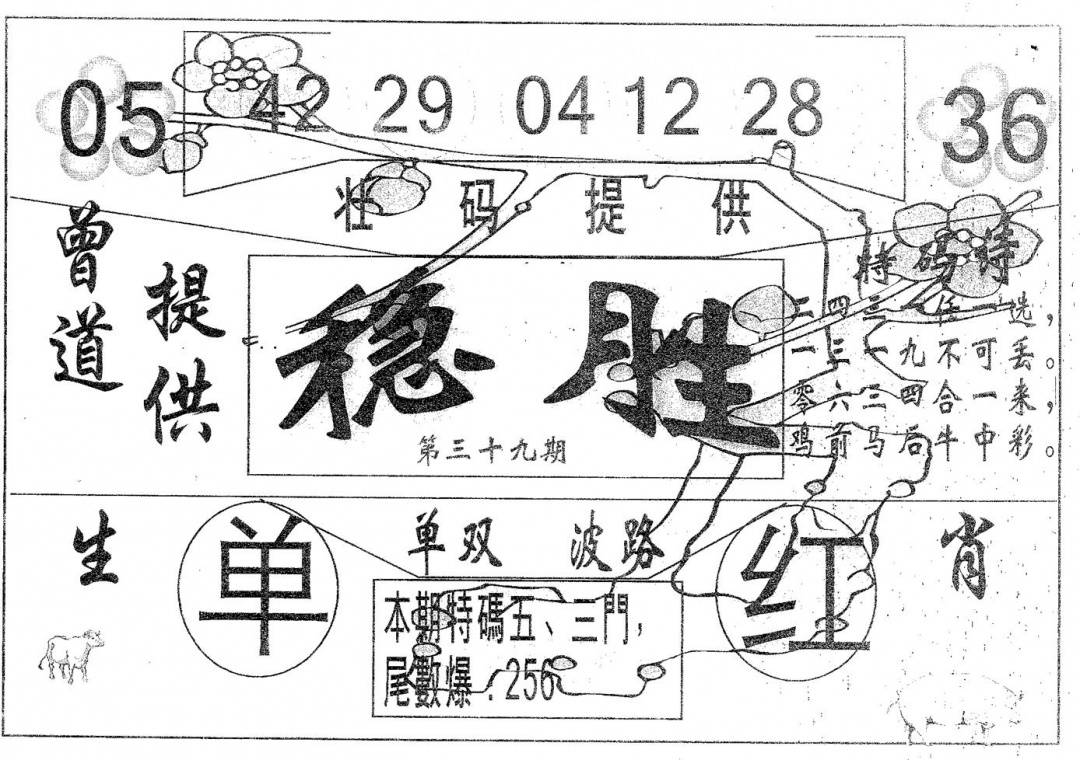 05 42 29 04 12 28 36
壮码提供
曾道
提供
稳胜
第三十九期
特码诗
二四三一任一选，
一三一九不可丢。
零六三四合一来，
鸡前马后牛中彩。
生
单
单双 波路
红
肖
本期特碼五、三門，
尾數爆：256